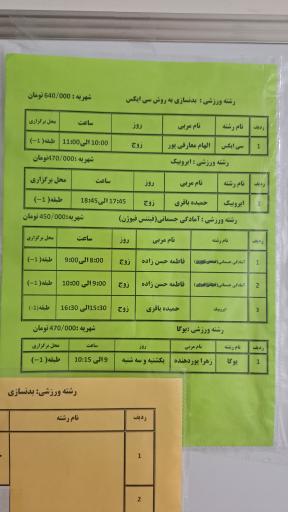 رشته ورزشی : بدنسازی به روش سی ایکس شهریه : 640/000 تومان
ردیف نام رشته نام مربی روز ساعت محل برگزاری
1 سی ایکس الهام معارفی پور زوج 10:00 الی 11:00 طبقه (1-)
رشته ورزشی : ایروبیک شهریه :470/000 تومان
ردیف نام رشته نام مربی روز ساعت محل برگزاری
ایروبیک حمیده باقری زوج 17:45 الی 18:45 طبقه (1-)
رشته ورزشی : آمادگی جسمانی (فیتنس فیوژن) شهریه :450/000 تومان
ردیف نام رشته نام مربی روز ساعت محل برگزاری
1 آمادگی جسمانی فاطمه حسن زاده زوج 8:00 الی 9:00 طبقه (1-)
2 آمادگی جسمانی فاطمه حسن زاده زوج 9:00 الی 10:00 طبقه (1-)
3 ایروبیک حمیده باقری زوج 15:30 الی 16:30 طبقه (1-)
رشته ورزشی : یوگا شهریه :470/000 تومان
ردیف نام رشته نام مربی روز ساعت محل برگزاری
1 یوگا زهرا پوردهنده یکشنبه و سه شنبه 9 الی 10:15 طبقه (1-)
رشته ورزشی: بدنسازی
ردیف نام رشته
1
2